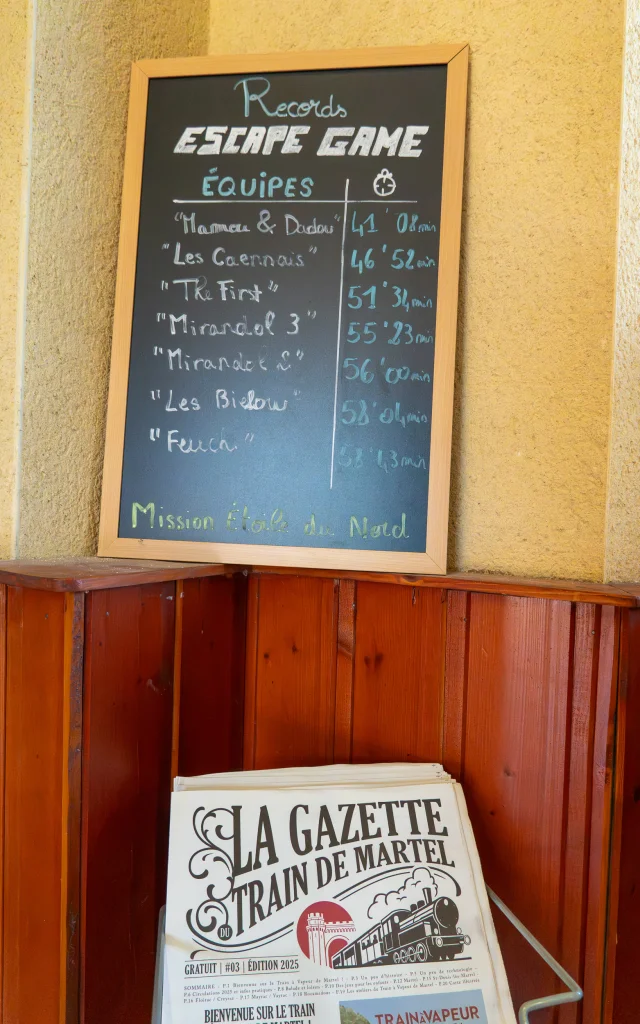 Records
ESCAPE GAME
ÉQUIPES
"Mamou & Dadou" 41'08min
"Les Caennais" 46'52min
"The First" 51'34min
"Mirandol 3" 55'23min
"Mirandol 2" 56'00min
"Les Bielou" 58'04min
"Feuch" 58'43min
Mission Étoile du Nord
LA GAZETTE
DU TRAIN DE MARTEL
GRATUIT | #03 | ÉDITION 2025
SOMMAIRE : P.1 Bienvenue sur le Train à Vapeur de Martel !
BIENVENUE SUR LE TRAIN
DE MARTEL !
TRAIN À VAPEUR